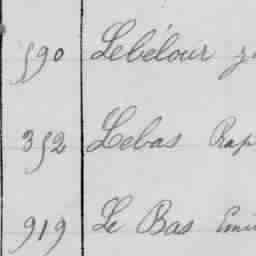 590 Lebélour
352 Lebas Rap
919 Le Bas Emi